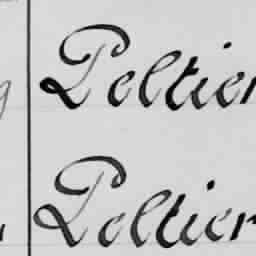 Peltier
Peltier